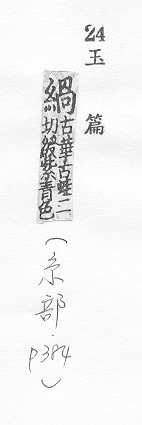 24玉篇
緺古華古蛙二
切綬紫青色
(糸部.p384)